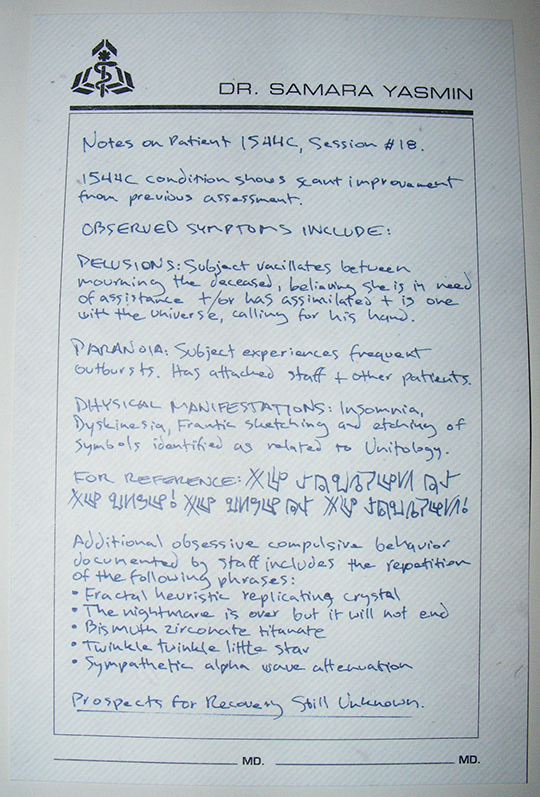 DR. SAMARA YASMIN
Notes on Patient 1544C, Session #18.
1544C condition shows scant improvement
from previous assessment.
OBSERVED SYMPTOMS INCLUDE:
DELUSIONS: Subject vacillates between
mourning the deceased, believing she is in need
of assistance +/or has assimilated + is one
with the universe, calling for his hand.
PARANOIA: Subject experiences frequent
outbursts. Has attacked staff + other patients.
PHYSICAL MANIFESTATIONS: Insomnia,
Dyskinesia, Frantic sketching and etching of
symbols identified as related to Unitology.
FOR REFERENCE:
Additional obsessive compulsive behavior
documented by staff includes the repetition
of the following phrases:
• Fractal heuristic replicating crystal
• The nightmare is over but it will not end
• Bismuth zirconate titanate
• Twinkle twinkle little star
• Sympathetic alpha wave attenuation
Prospects for Recovery Still Unknown.
MD. MD.